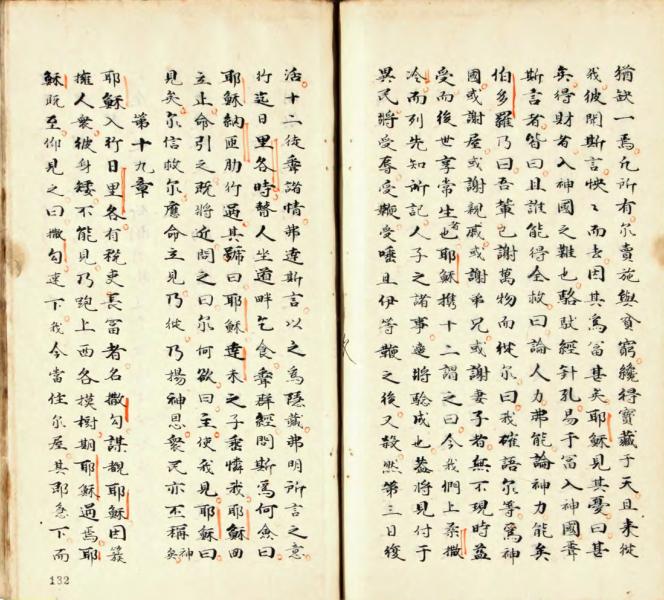 猶缺一焉凡所有尔賣施與貧窮纔得寶藏于天且来從
我彼聞斯言怏怏而去因其為富甚矣耶穌見其憂曰甚
矣得財者入神國之難也駱駝經針孔易于富入神國聽
斯言者皆曰且誰能得全救曰論人力弗能論神力能矣
伯多羅乃曰吾輩已謝萬物而從尔曰我確語尔等為神
國或謝屋或謝親戚或謝弟兄或謝妻子者無不現時益
受而後世享常生者也耶穌携十二謂之曰今我們上柔撒
冷而列先知所記人子之諸事遂將騐成也蓋將見付于
異民將受辱受鞭受唾且伊等鞭之後又殺然第三日復
活十二徒聽諸情弗達斯言以之為隱藏弗明所言之意
行近日里各時瞽人坐道畔乞食聽群經問斯為何僉曰
耶穌納匝肋行過其號曰耶穌達未之子垂憐我耶穌回
立止命引之既將近問之曰尔何欲曰主使我見耶穌曰
見矣尔信救尔應命立見乃從乃揚神恩衆民亦丕稱神矣
第十九章
耶穌入行日里各有稅吏長富者名撒勾謀觀耶穌因簇
擁人衆彼身矮不能見乃跑上西各摸樹期耶穌過焉耶
穌既至仰見之曰撒勾速下我今當住尔屋其即急下而
132